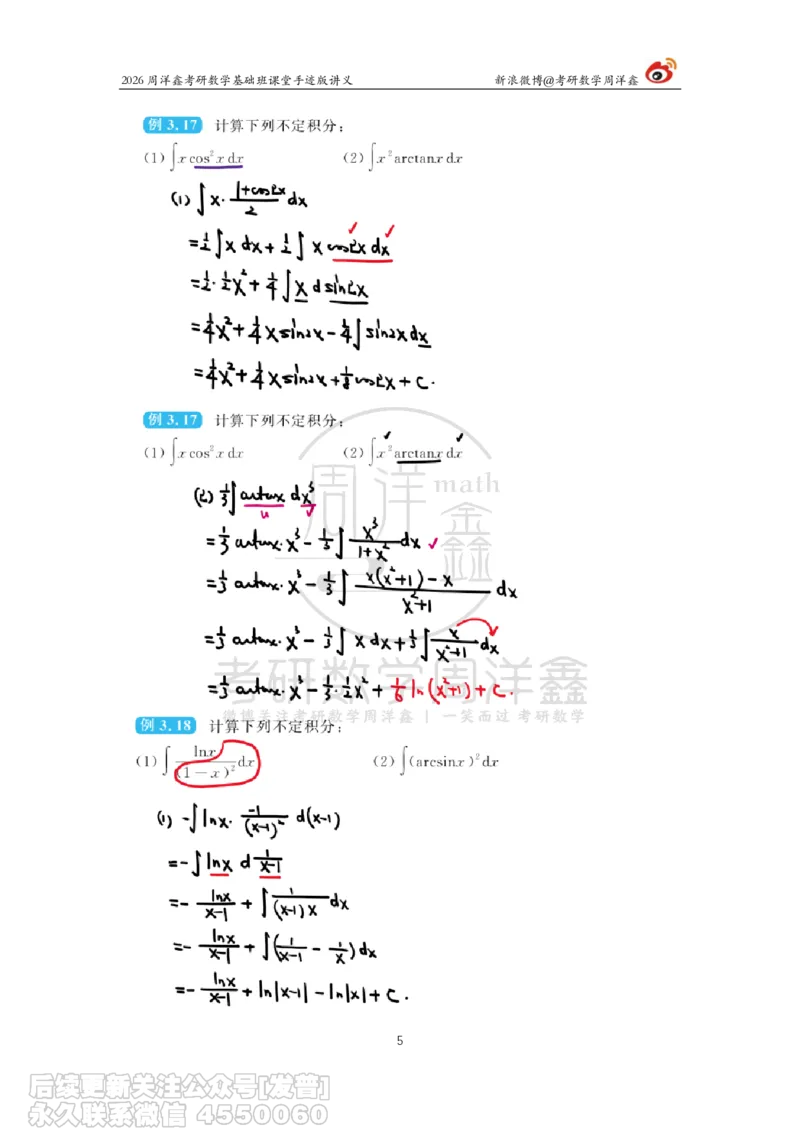 2026 周洋鑫考研数学基础班课堂手迹版讲义 新浪微博@考研数学周洋鑫
例 3.17 计算下列不定积分：
(1) ∫x cos²x dx (2) ∫x² arctanx dx
(1) ∫x· (1+cos2x)/2 dx
=½∫x dx+½∫ x cos2x dx
=½·½x²+¼∫x d sin2x
=¼x²+¼x sin2x-¼∫sin2x dx
=¼x²+¼x sin2x+⅛cos2x+C.
例 3.17 计算下列不定积分：
(1) ∫x cos²x dx (2) ∫x² arctanx dx
周洋鑫 math
(2) ⅓∫arctanx dx³
u v
=⅓ arctanx·x³-⅓∫ x³/(1+x²) dx
=⅓ arctanx·x³-⅓∫ (x(x²+1)-x)/(x²+1) dx
=⅓ arctanx·x³-⅓∫ x dx+⅓∫ x/(x²+1) dx
考研数学周洋鑫
=⅓ arctanx·x³-⅓·½x²+⅙ ln(x²+1)+C.
微博关注考研数学周洋鑫 | 一笑而过 考研数学
例 3.18 计算下列不定积分：
(1) ∫ lnx/(1-x)² dx (2) ∫(arcsinx)² dx
(1) -∫lnx· -1/(x-1)² d(x-1)
=-∫lnx d 1/(x-1)
=- lnx/(x-1) + ∫ 1/((x-1)x) dx
=- lnx/(x-1) + ∫(1/(x-1) - 1/x) dx
=- lnx/(x-1) + ln|x-1| - ln|x|+C.
5
后续更新关注公众号[发普]
永久联系微信 4550060